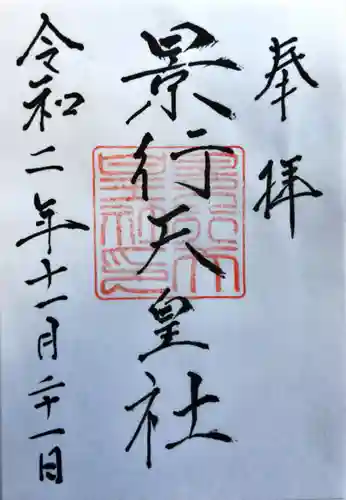 奉拝
景行天皇社
令和二年十一月二十一日